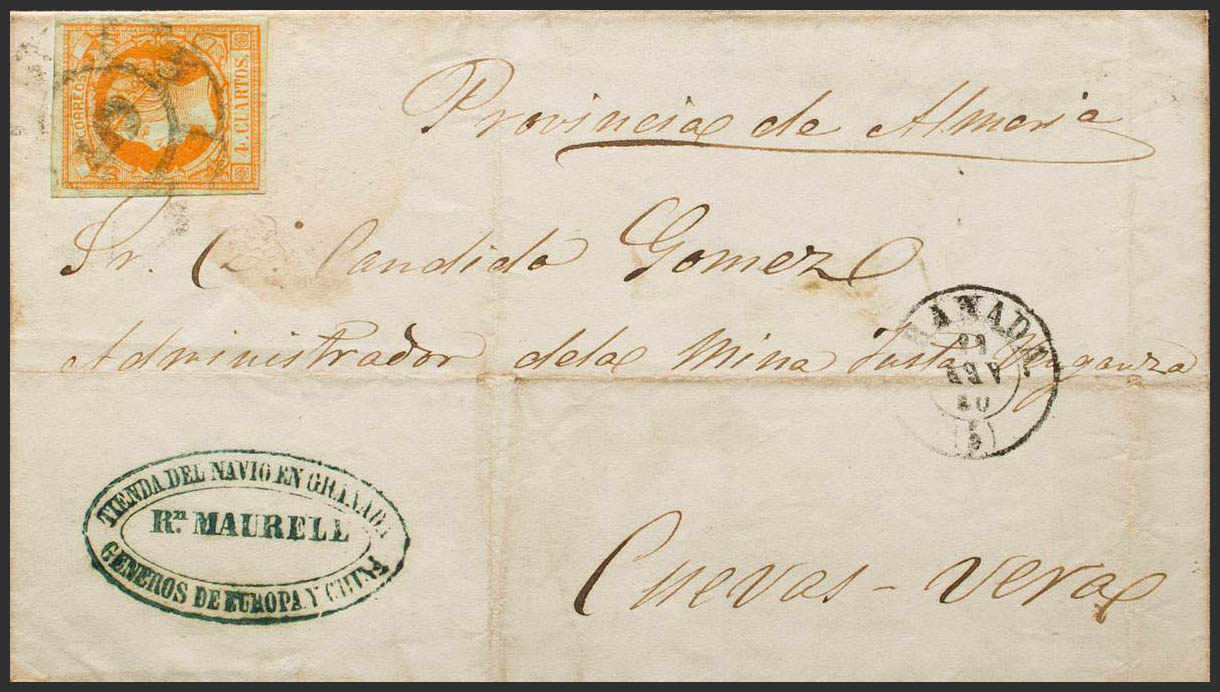 CORREOS
4. CUARTOS.
Provincia de Almeria
Sr. Dn. Candido Gomez
Administrador dela Mina Justa
GRANADA
ABR
60
(4)
TIENDA DEL NAVIO EN GRANADA
Rn. MAURELL
GENEROS DE EUROPA Y CHINA
Cuevas-vera